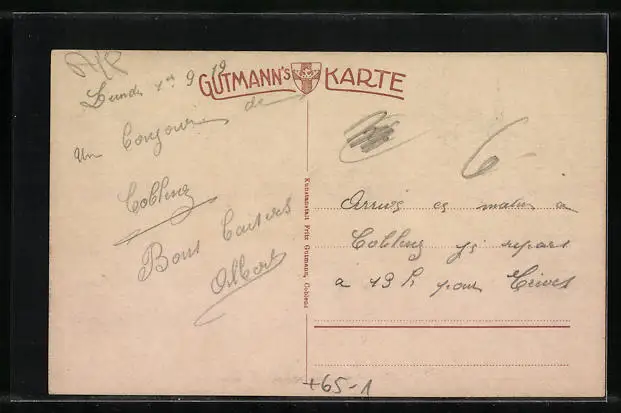 GUTMANN'S KARTE
Lundi 1er 9 19
Un bonjour de
Coblenz
Bons baisers
Albert
Kunstanstalt Fritz Gutmann, Coblenz
6
Arrivé ce matin a
Coblenz je repars
a 13 h pour Trèves
+65-1